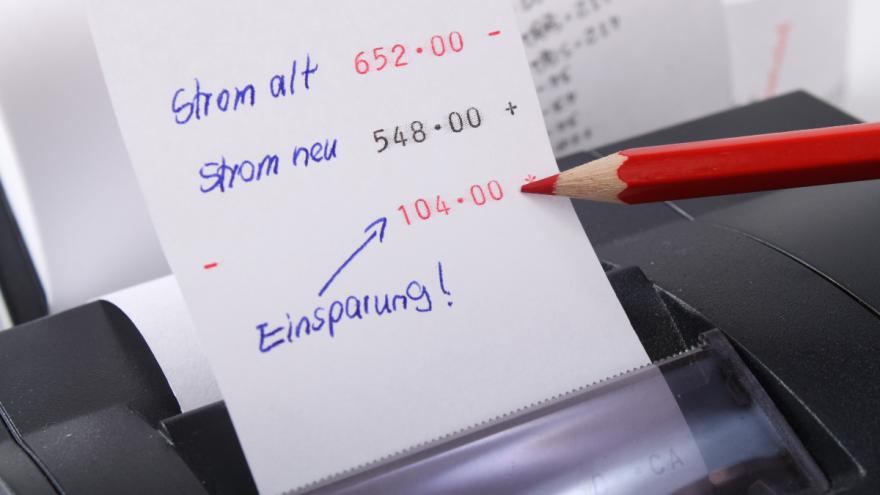 Strom alt 652·00 -
Strom neu 548·00 +
104·00 *
-
Einsparung!
CA